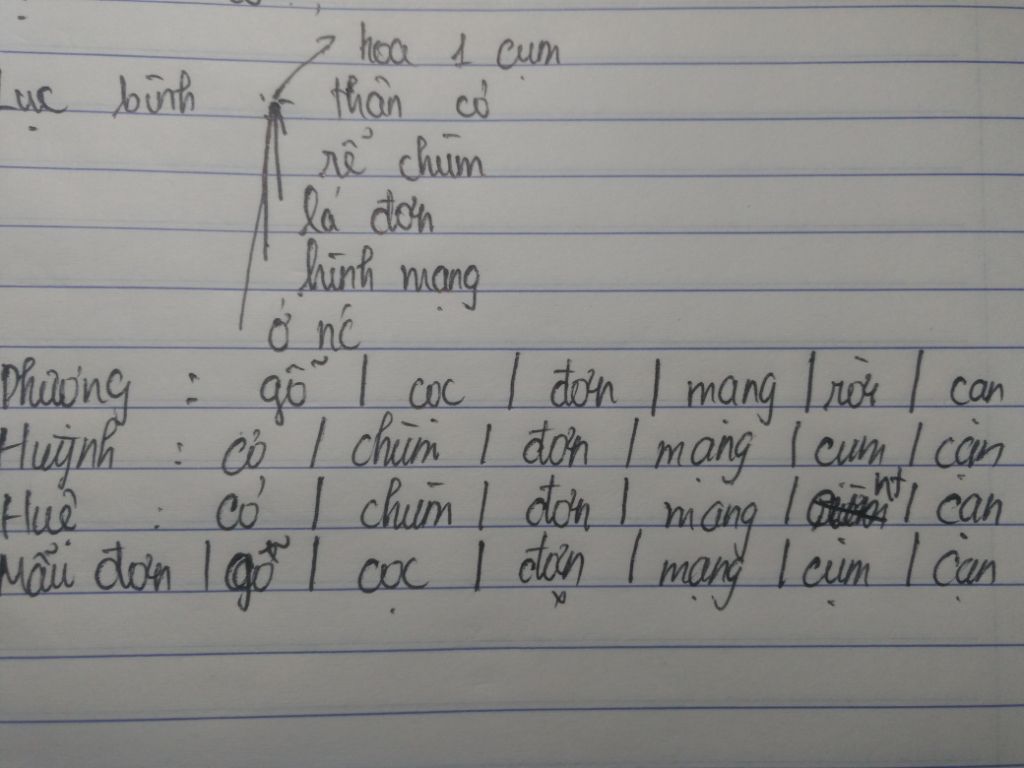 hoa 1 cụm
Lục bình thân cỏ
rễ chùm
lá đơn
hình mạng
Ở nć
Phượng : gỗ | cọc | đơn | mạng | rời | cạn
Huỳnh : cỏ | chùm | đơn | mạng | cụm | cạn
Huệ : cỏ | chùm | đơn | mạng | nt | cạn
Mẫu đơn | gỗ | cọc | đơn | mạng | cụm | cạn